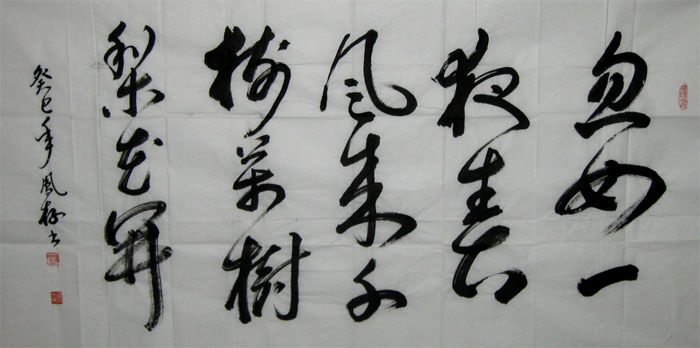 忽如一
夜春
风来千
树万樹
梨花開
癸巳年風书